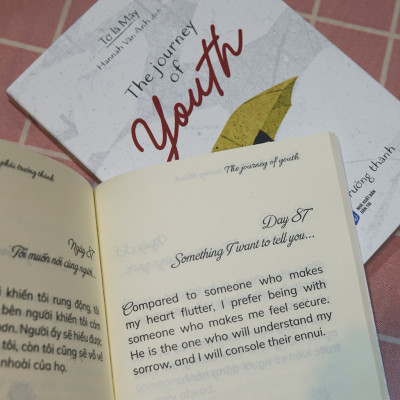 Tớ là Mây
Hannah Vân Anh dịch
The journey
of
Youth
trưởng thành
NHÀ XUẤT BẢN
DÂN TRÍ
phía trưởng thành
Ngày 87
Tôi muốn nói cùng người...
khiến tôi rung động, tôi
bên người khiến tôi cảm
hơn. Người ấy sẽ hiểu được
tôi, còn tôi cũng sẽ vỗ về
nhoài của họ.
The journey of youth
Day 87
Something I want to tell you...
Compared to someone who makes
my heart flutter, I prefer being with
someone who makes me feel secure.
He is the one who will understand my
sorrow, and I will console their ennui.